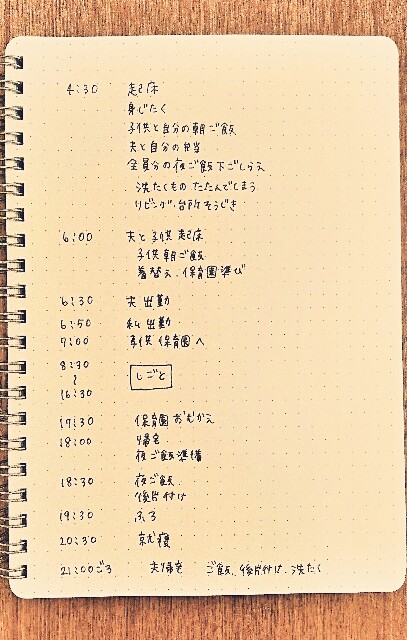 4:30 起床
身じたく
子供と自分の朝ご飯
夫と自分の弁当
全員分の夜ご飯下ごしらえ
洗たくものたたんでしまう
リビング、台所そうじき
6:00 夫と子供起床
子供朝ご飯
着替え、保育園準び
6:30 夫出勤
6:50 私出勤
7:00 子供保育園へ
8:30
〜 しごと
16:30
17:30 保育園おむかえ
18:00 帰宅
夜ご飯準備
18:30 夜ご飯
後片付け
19:30 ふろ
20:30 就寝
21:00ごろ 夫帰宅 ご飯、後片付け、洗たく